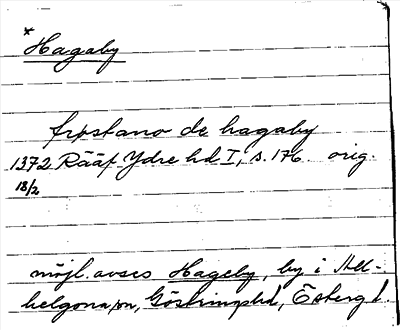 *
Hagaby
frostano de hagaby
1372 Rääf Ydre hd I, s. 176. orig.
18/2
möjl. avses Hageby, by i All-
helgona sn, Göstrings hd, Östergl.